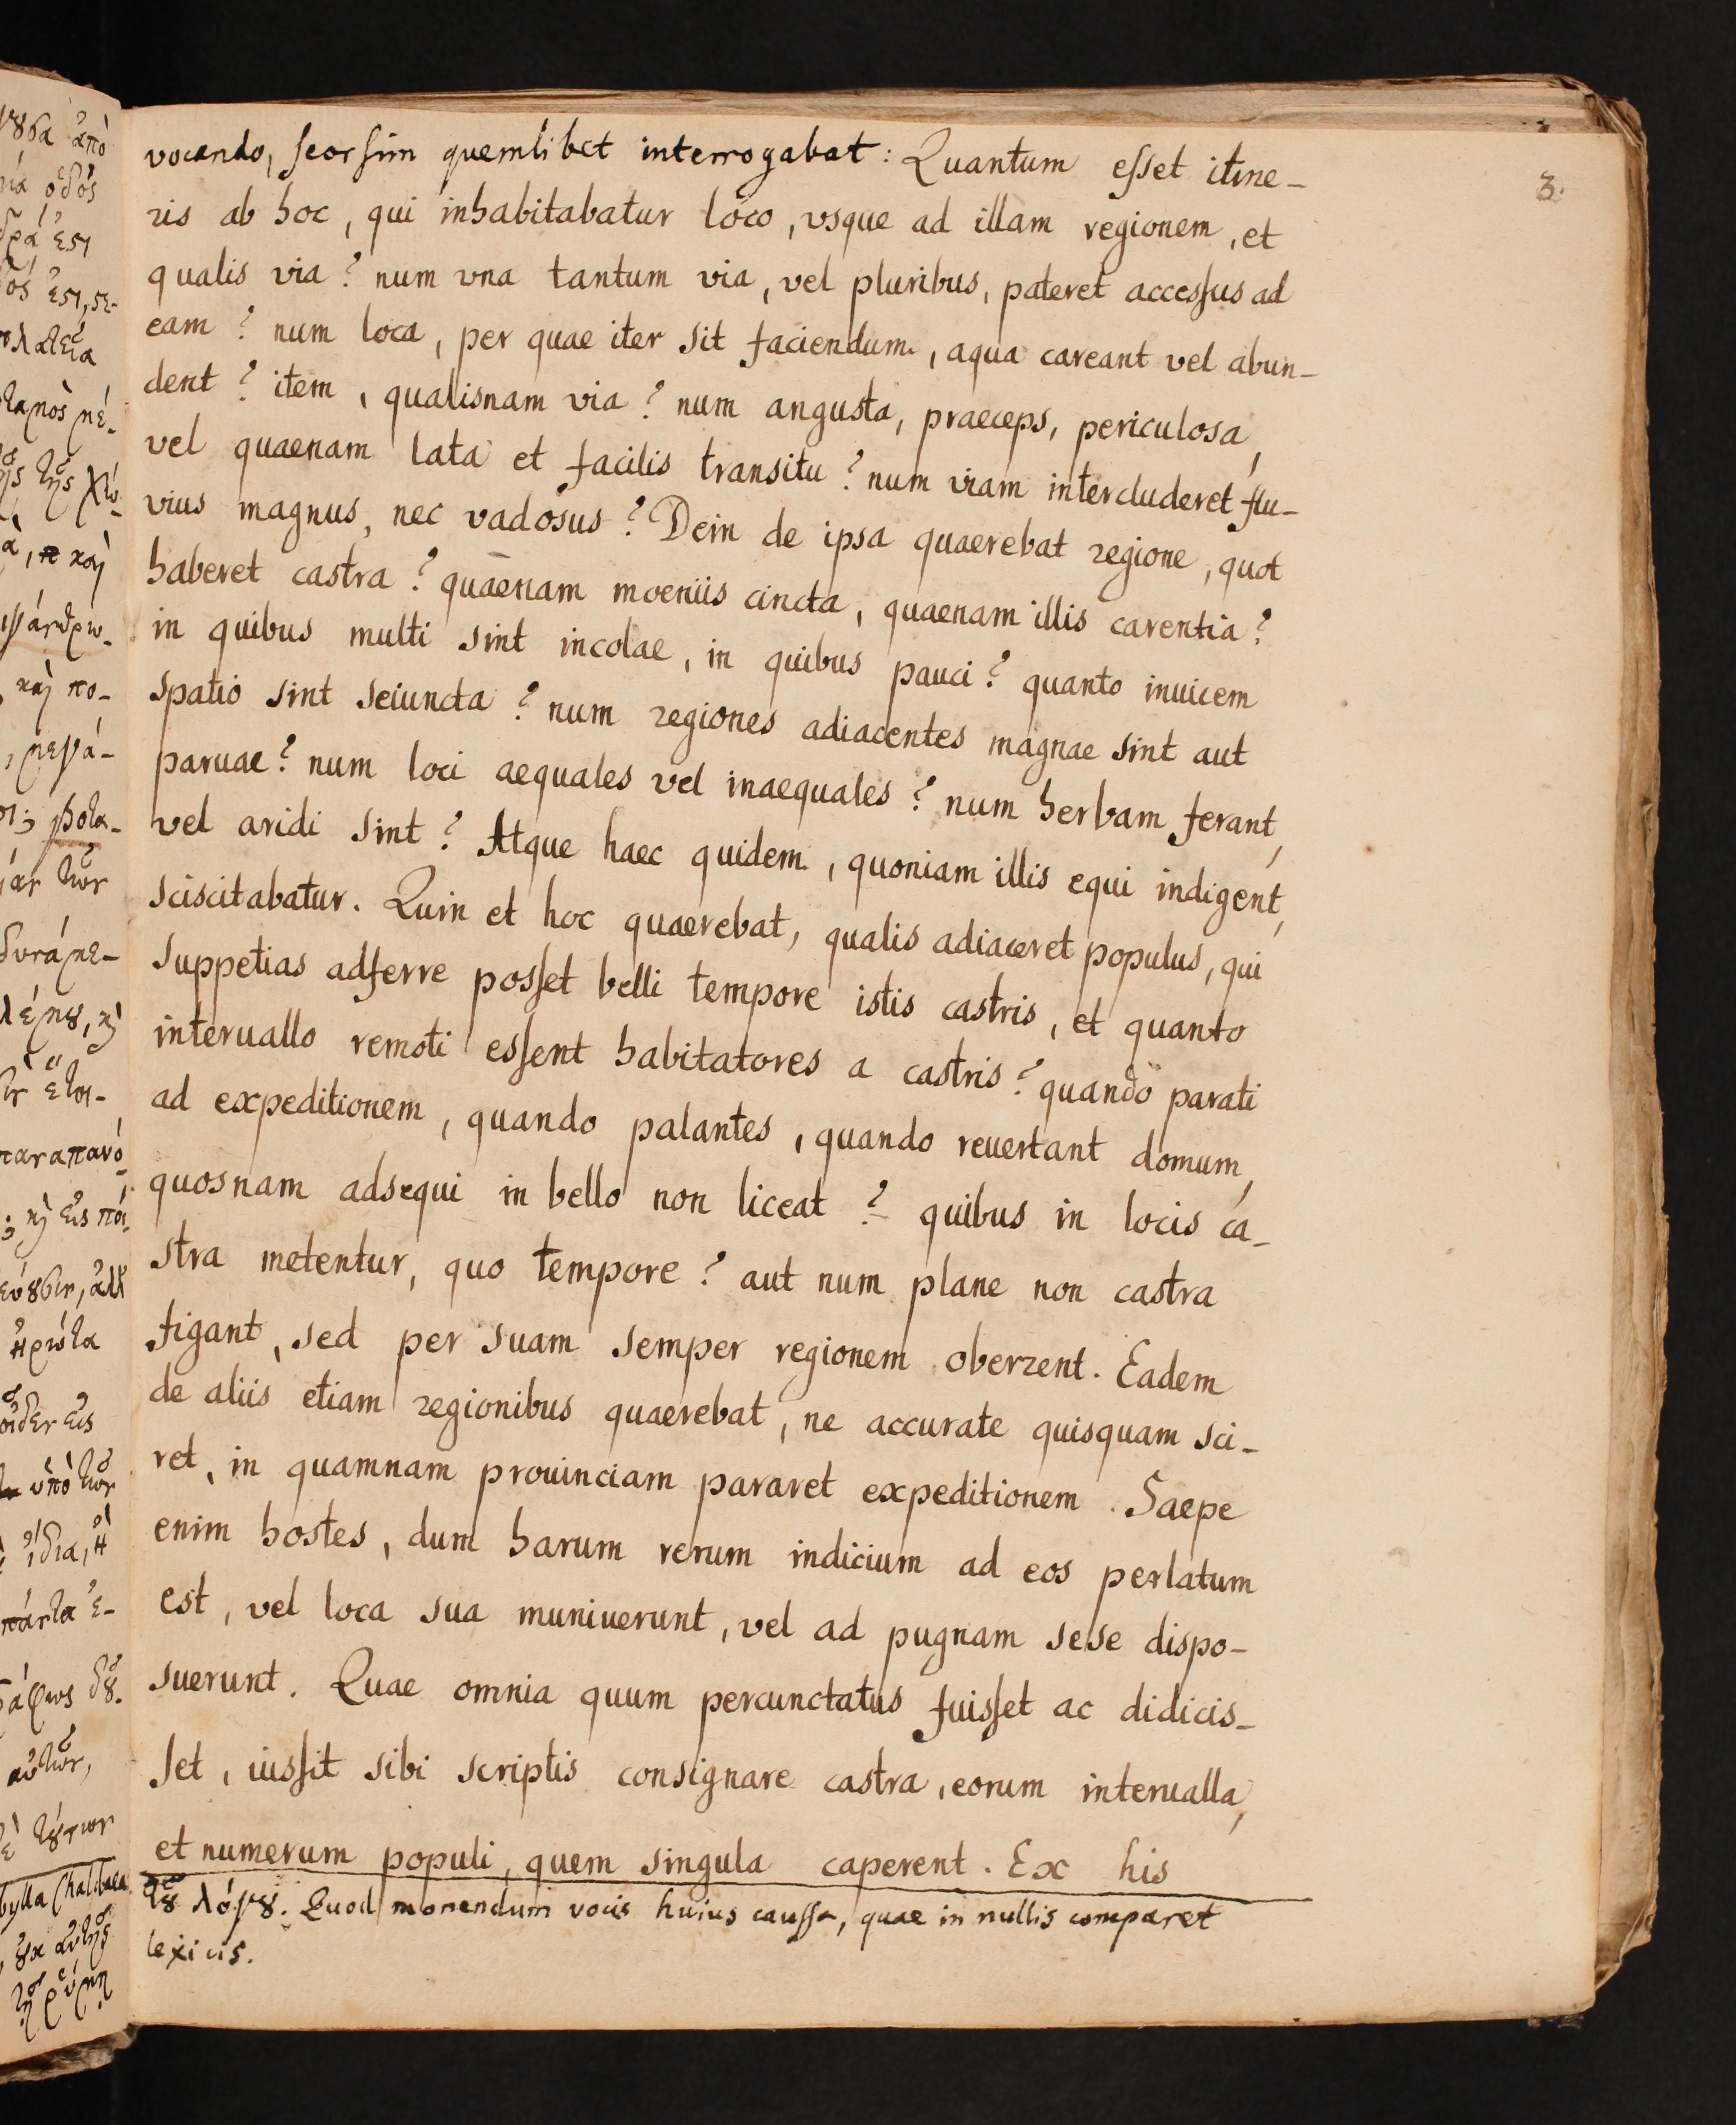 3.
vocando, seorsim quemlibet interrogabat: Quantum esset itine-
ris ab hoc, qui inhabitabatur loco, vsque ad illam regionem, et
qualis via? num vna tantum via, vel pluribus, pateret accessus ad
eam? num loca, per quae iter sit faciendum, aqua careant vel abun-
dent? item, qualisnam via? num angusta, praeceps, periculosa,
vel quaenam lata et facilis transitu? num viam intercluderet flu-
vius magnus, nec vadosus? Dein de ipsa quaerebat regione, quot
haberet castra? quaenam moeniis cincta, quaenam illis carentia?
in quibus multi sint incolae, in quibus pauci? quanto inuicem
spatio sint seiuncta? num regiones adiacentes magnae sint aut
paruae? num loci aequales vel inaequales? num herbam ferant,
vel aridi sint? Atque haec quidem, quoniam illis equi indigent,
sciscitabatur. Quin et hoc quaerebat, qualis adiaceret populus, qui
suppetias adferre posset belli tempore istis castris, et quanto
interuallo remoti essent habitatores a castris? quando parati
ad expeditionem, quando palantes, quando reuertant domum,
quosnam adsequi in bello non liceat? quibus in locis ca-
stra metentur, quo tempore? aut num plane non castra
figant, sed per suam semper regionem oberrent. Eadem
de aliis etiam regionibus quaerebat, ne accurate quisquam sci-
ret, in quamnam prouinciam pararet expeditionem. Saepe
enim hostes, dum harum rerum indicium ad eos perlatum
est, vel loca sua muniuerunt, vel ad pugnam sese dispo-
suerunt. Quae omnia quum percunctatus fuisset ac didicis-
set, iussit sibi scriptis consignare castra, eorum interualla,
et numerum populi, quem singula caperent. Ex his
τȣ͂ λόγȣ. Quod monendum vocis huius caussa, quae in nullis comparet
lexicis.